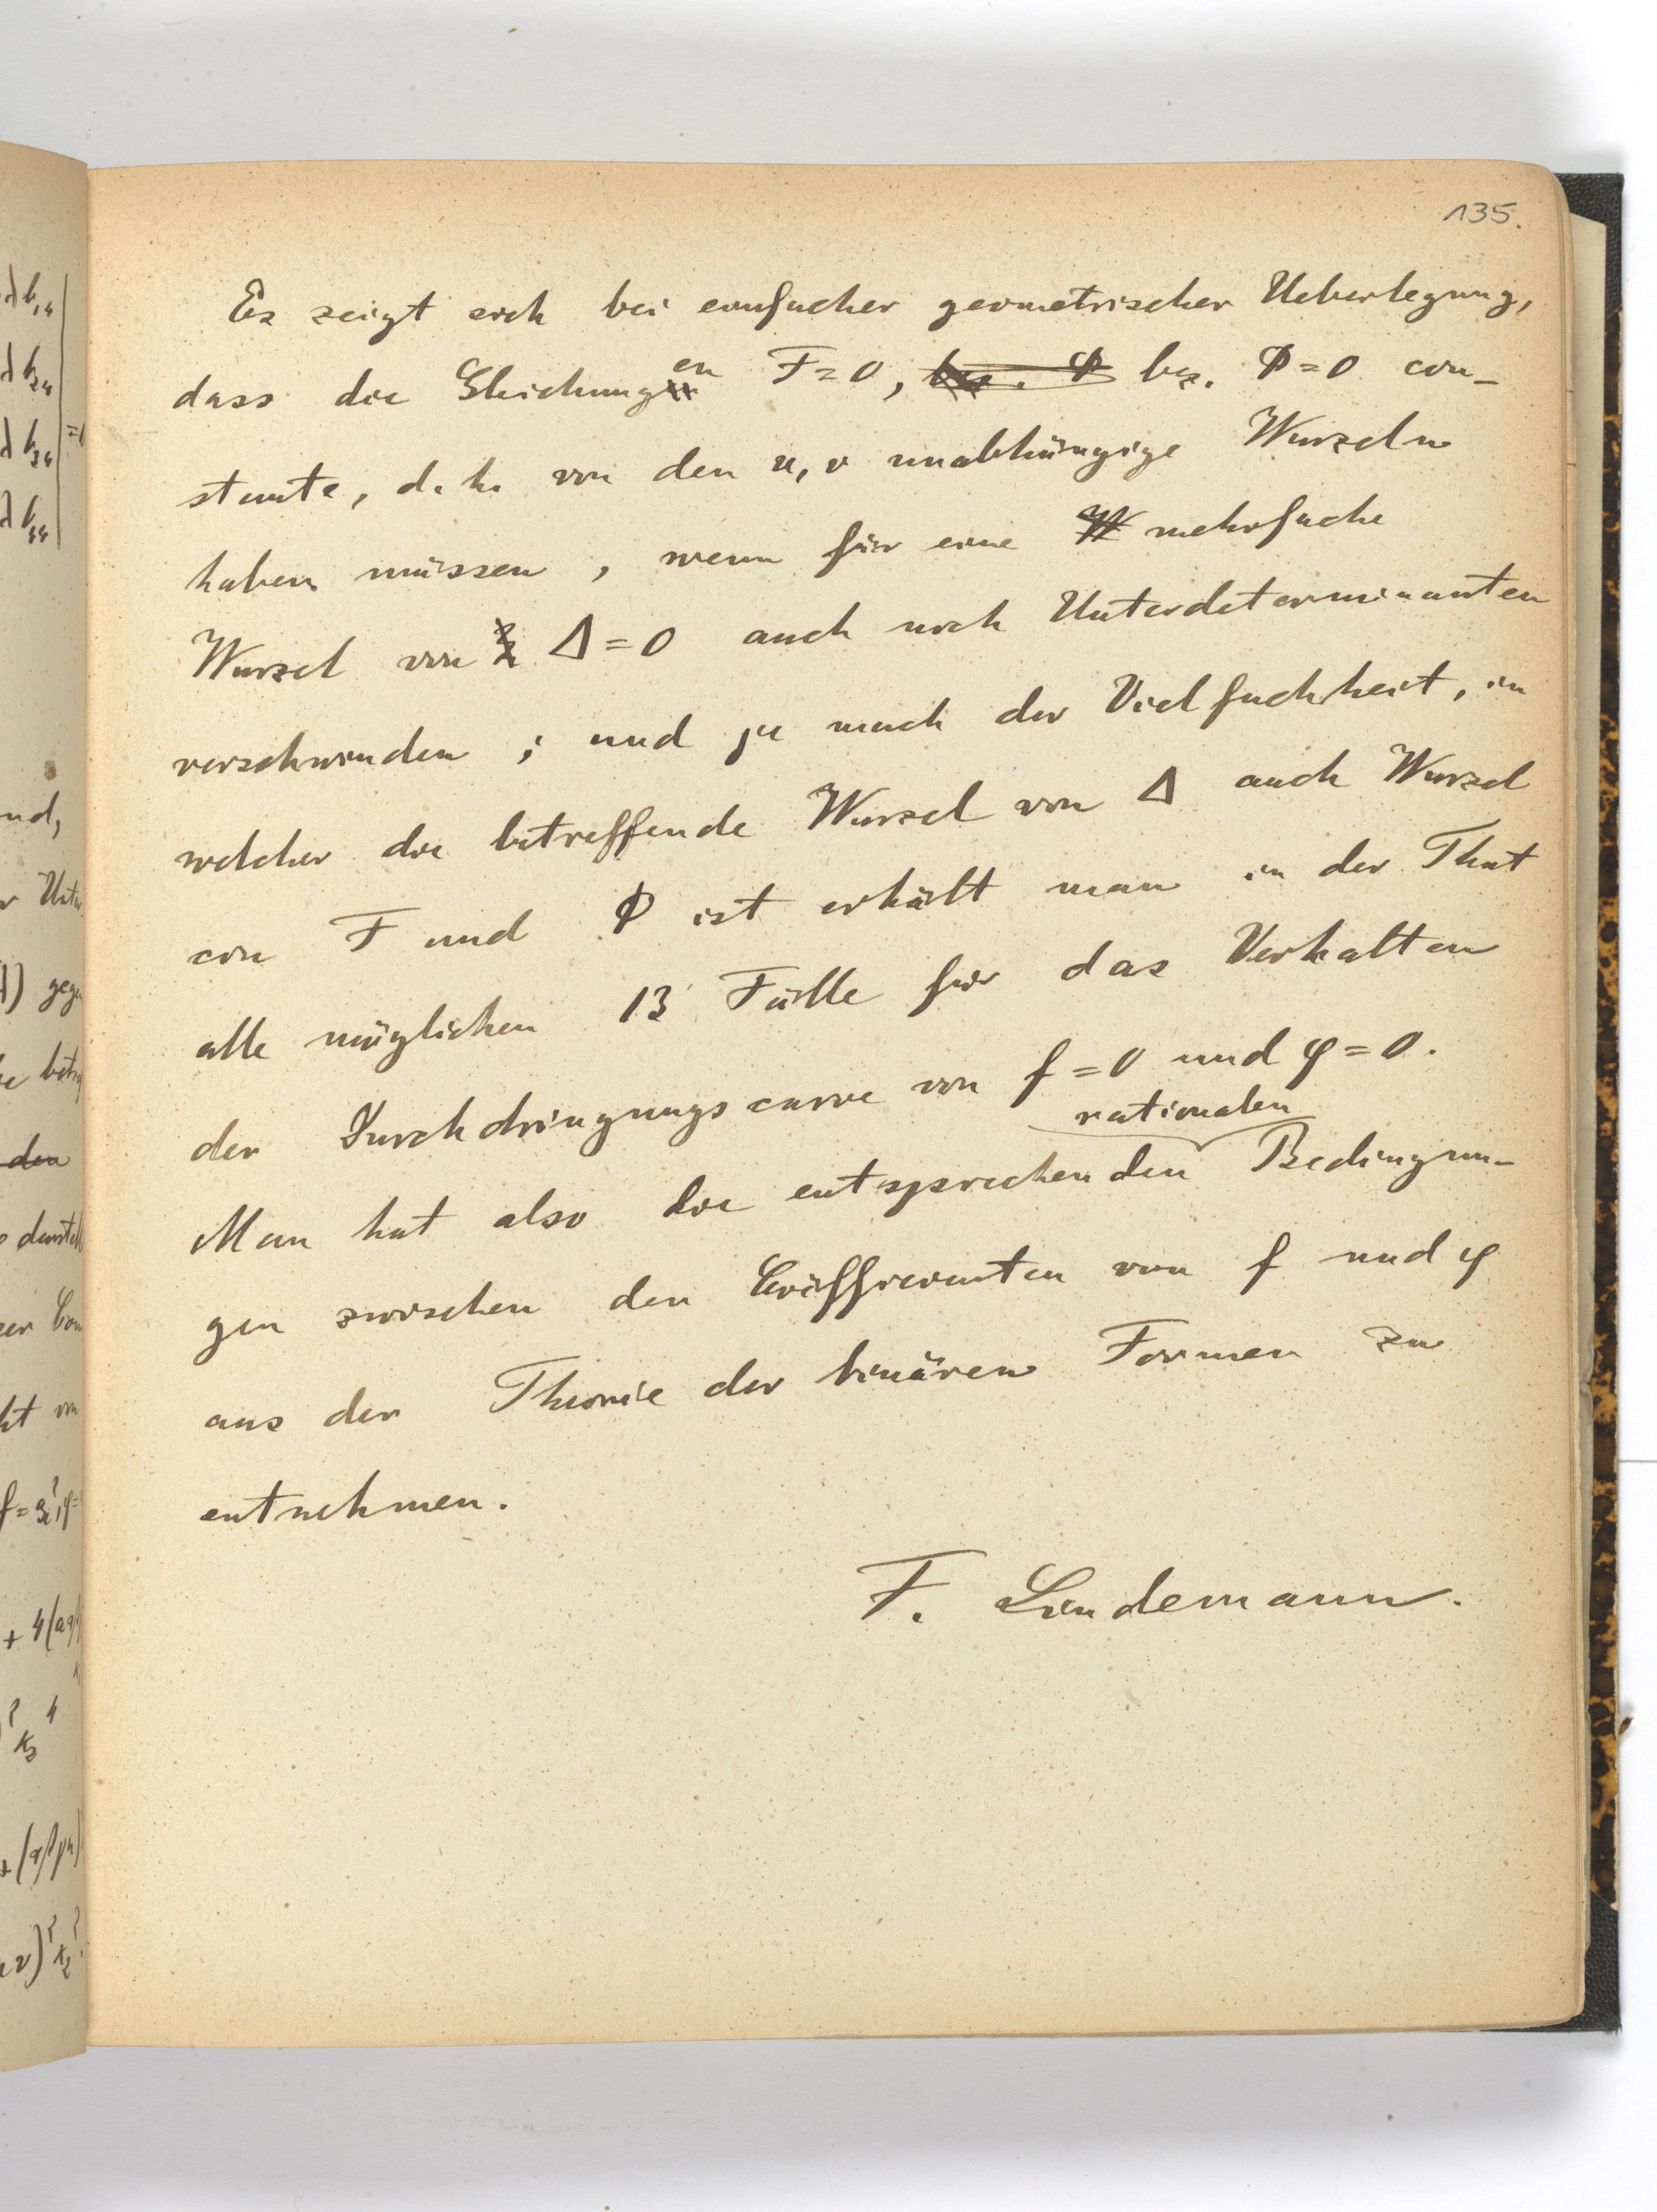 135.
Es zeigt sich bei einfacher geometrischer Ueberlegung,
dass die Gleichungen F=0, bez. Φ bez. Φ=0 con-
stante, d. h. von den u, v unabhängige Wurzeln
haben müssen, wenn für eine W mehrfache
Wurzel von Δ=0 auch noch Unterdeterminanten
verschwinden; und je nach der Vielfachheit, in
welcher die betreffende Wurzel von Δ auch Wurzel
von F und Φ ist erhält man in der That
alle möglichen 13 Fälle für das Verhalten
der Durchdringungscurve von f=0 und φ=0.
rationalen
Man hat also die entsprechenden Bedingun-
gen zwischen den Coëfficienten von f und φ
aus der Theorie der binären Formen zu
entnehmen.
F. Lindemann.